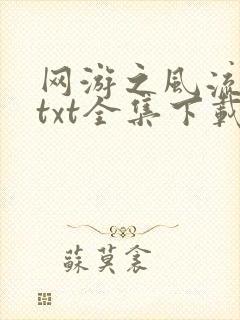 网游之风流
txt全集下载
蘇莫衾